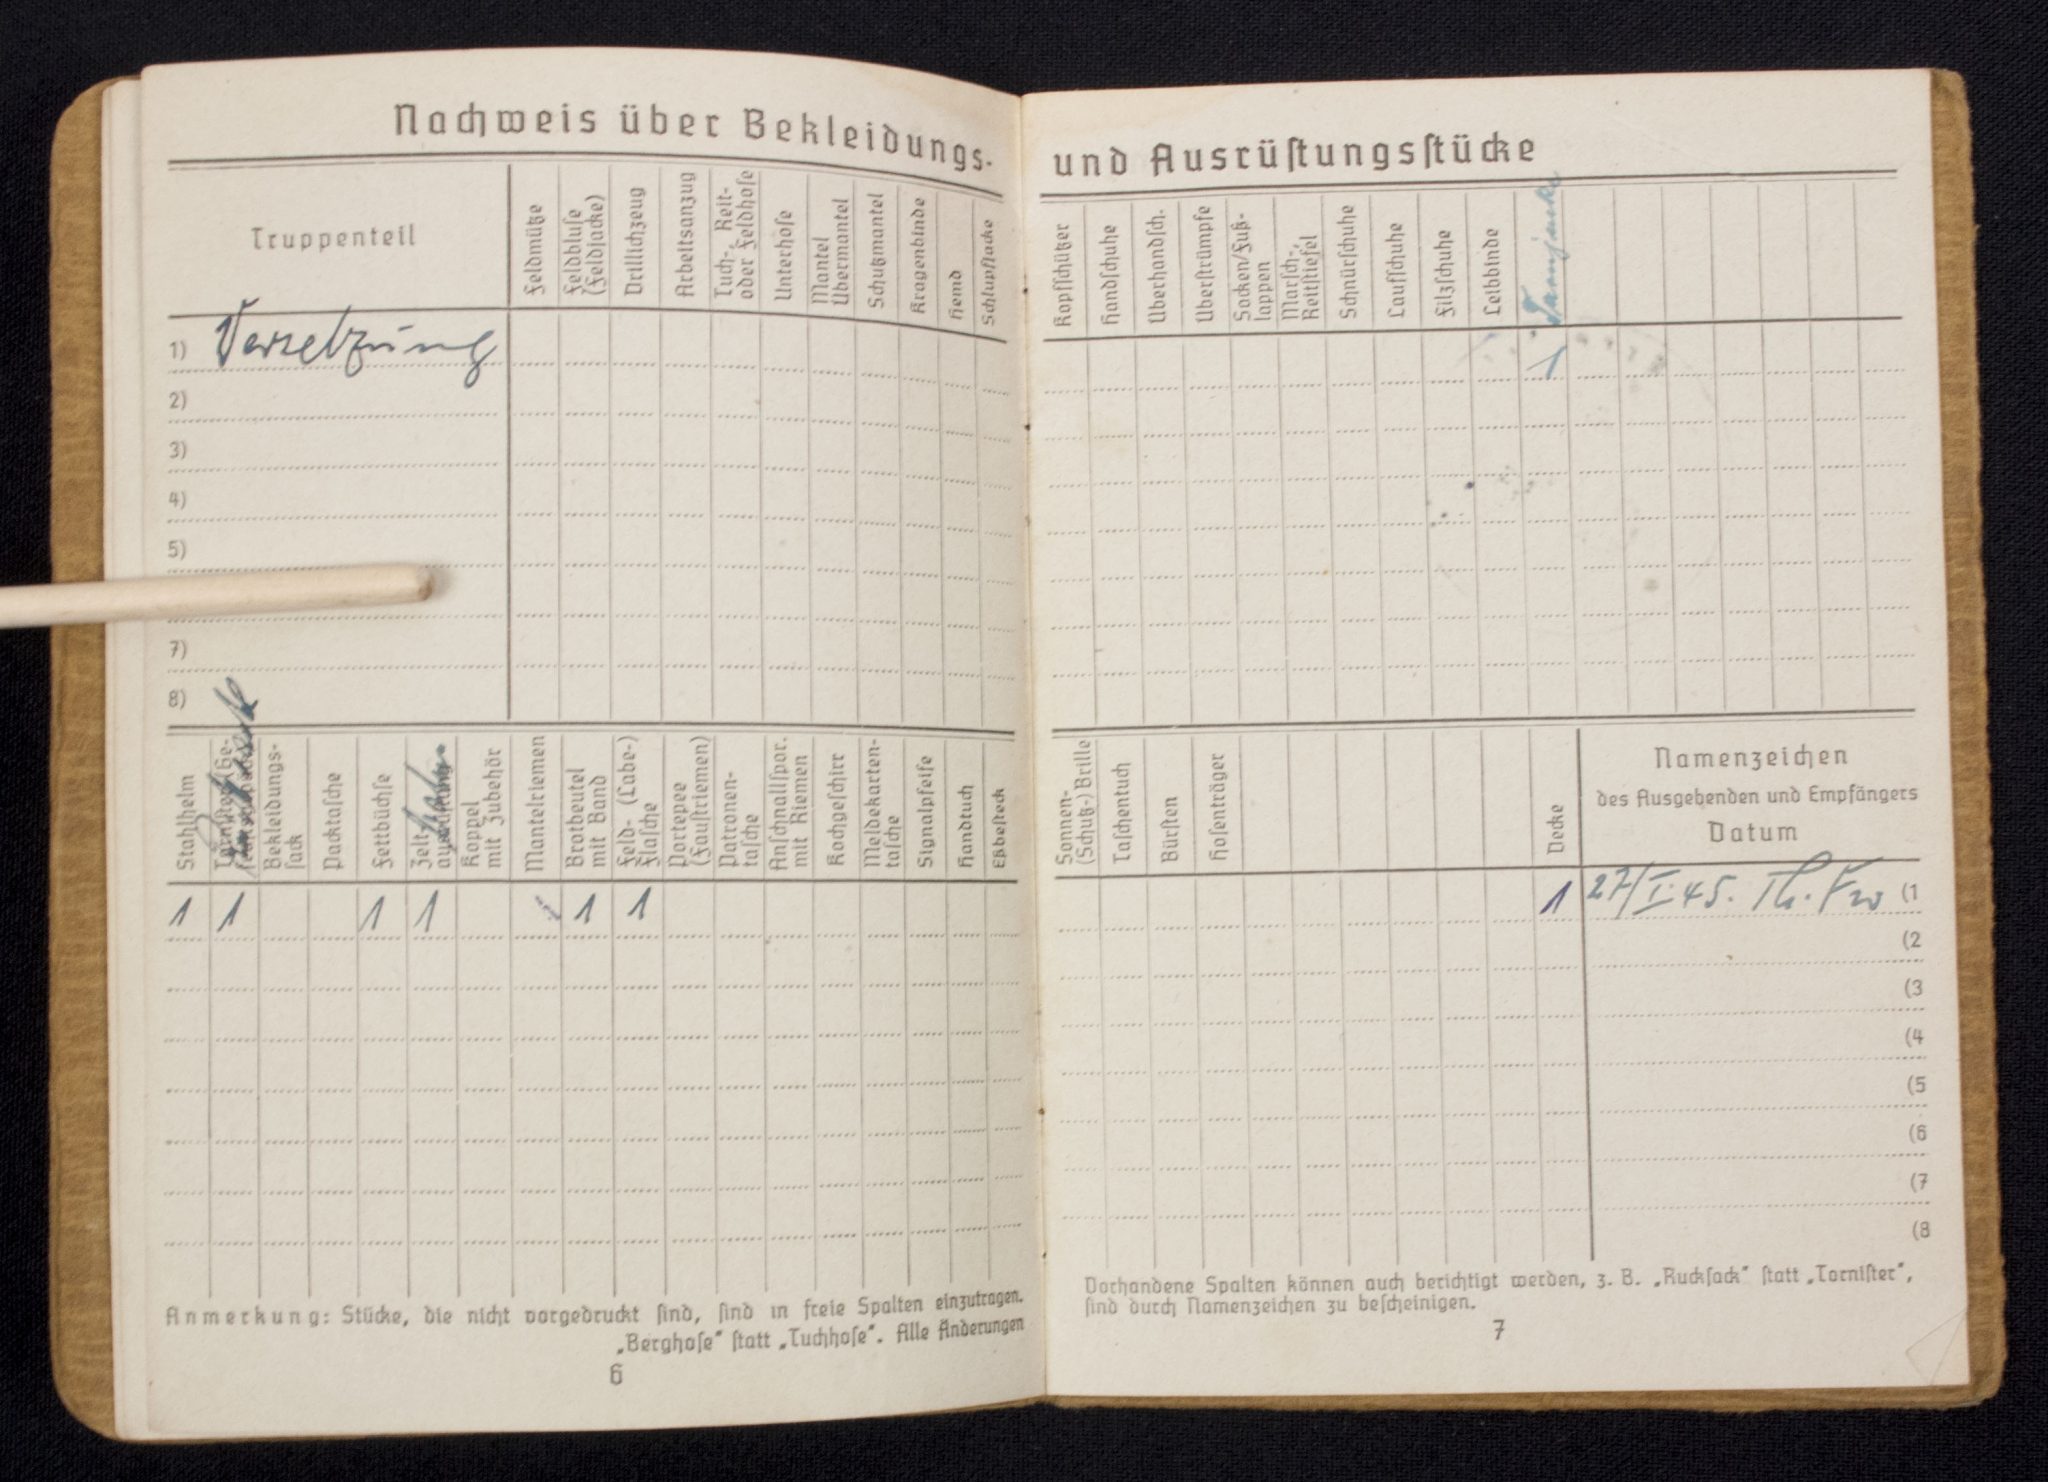 Nachweis über Bekleidungs-
Truppenteil
Feldmütze
Feldbluse
(Feldjacke)
Drillichzeug
Arbeitsanzug
Tuch-, Reit-
oder Feldhose
Unterhose
Mantel
Übermantel
Schutzmantel
Kragenbinde
Hemd
Schlupfjacke
1) Versetzung
2)
3)
4)
5)
7)
8)
Stahlhelm
Bekleidungs-
sack
Packtasche
Fettbüchse
Zelt
Koppel
mit Zubehör
Mantelriemen
Brotbeutel
mit Band
Feld- (Labe-)
Flasche
Portepee
(Faustriemen)
Patronen-
tasche
Anschnallspor.
mit Riemen
Kochgeschirr
Meldekarten-
tasche
Signalpfeife
Handtuch
Eßbesteck
1 1 1 1 1 1
Anmerkung: Stücke, die nicht vorgedruckt sind, sind in freie Spalten einzutragen.
„Berghose“ statt „Tuchhose“. Alle Änderungen
6
und Ausrüstungsstücke
Kopfschützer
Handschuhe
Überhandsch.
Überstrümpfe
Socken/Fuß-
lappen
Marsch-,
Reitstiefel
Schnürschuhe
Laufschuhe
Filzschuhe
Leibbinde
Tarnjacke
1
Sonnen-
(Schutz-) Brille
Taschentuch
Bürsten
Hosenträger
Decke
Namenzeichen
des Ausgebenden und Empfängers
Datum
1 27/I.45. (1
(2
(3
(4
(5
(6
(7
(8
Vorhandene Spalten können auch berichtigt werden, z. B. „Rucksack“ statt „Tornister“,
sind durch Namenzeichen zu bescheinigen.
7